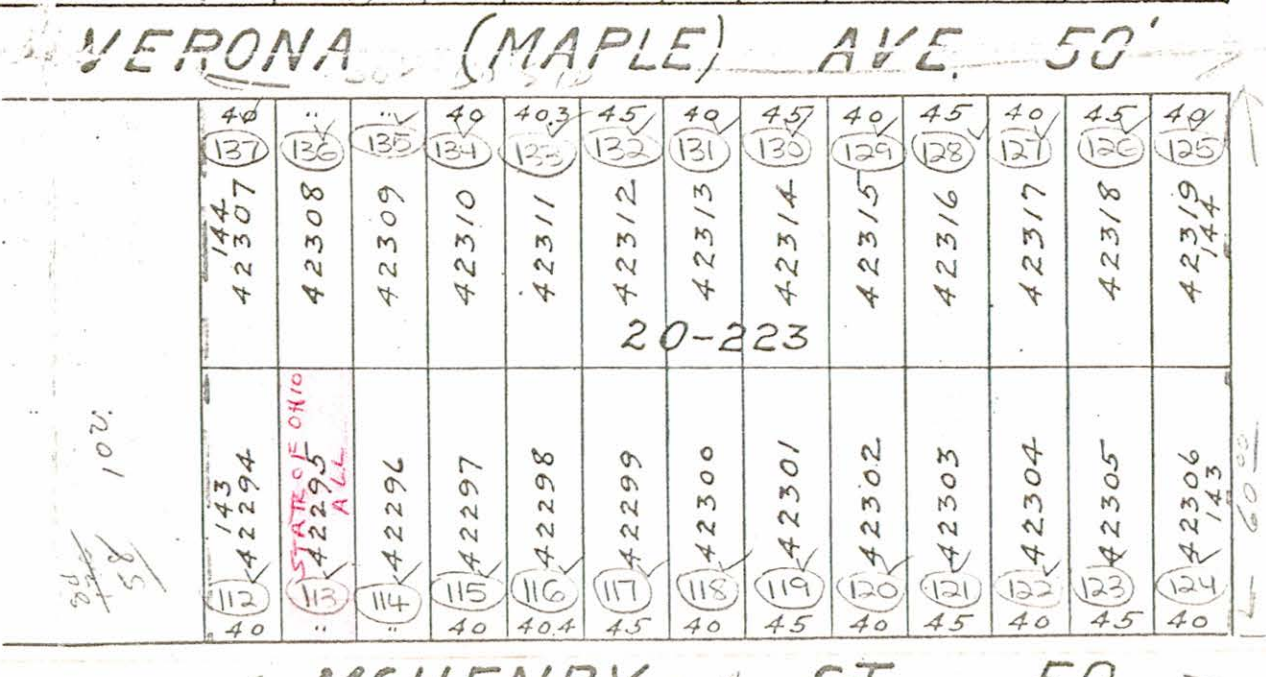 VERONA (MAPLE) AVE. 50'
40 " " 40 40.3 45 40 45 40 45 40 45 40
137 136 135 134 133 132 131 130 129 128 127 126 125
144 144
42307 42308 42309 42310 42311 42312 42313 42314 42315 42316 42317 42318 42319
20-223
STATE OF OHIO
ALL
102.
58
60
143 143
42294 42295 42296 42297 42298 42299 42300 42301 42302 42303 42304 42305 42306
112 113 114 115 116 117 118 119 120 121 122 123 124
40 " " 40 40.4 45 40 45 40 45 40 45 40
MCHENRY ST. 50